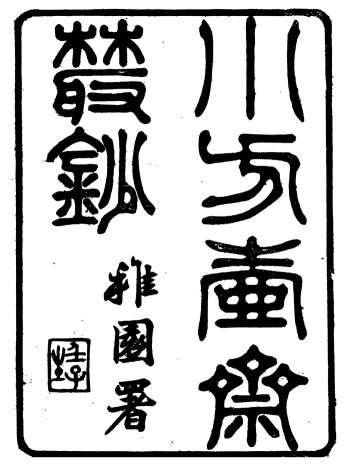 小方壺齋
叢鈔
稚園署